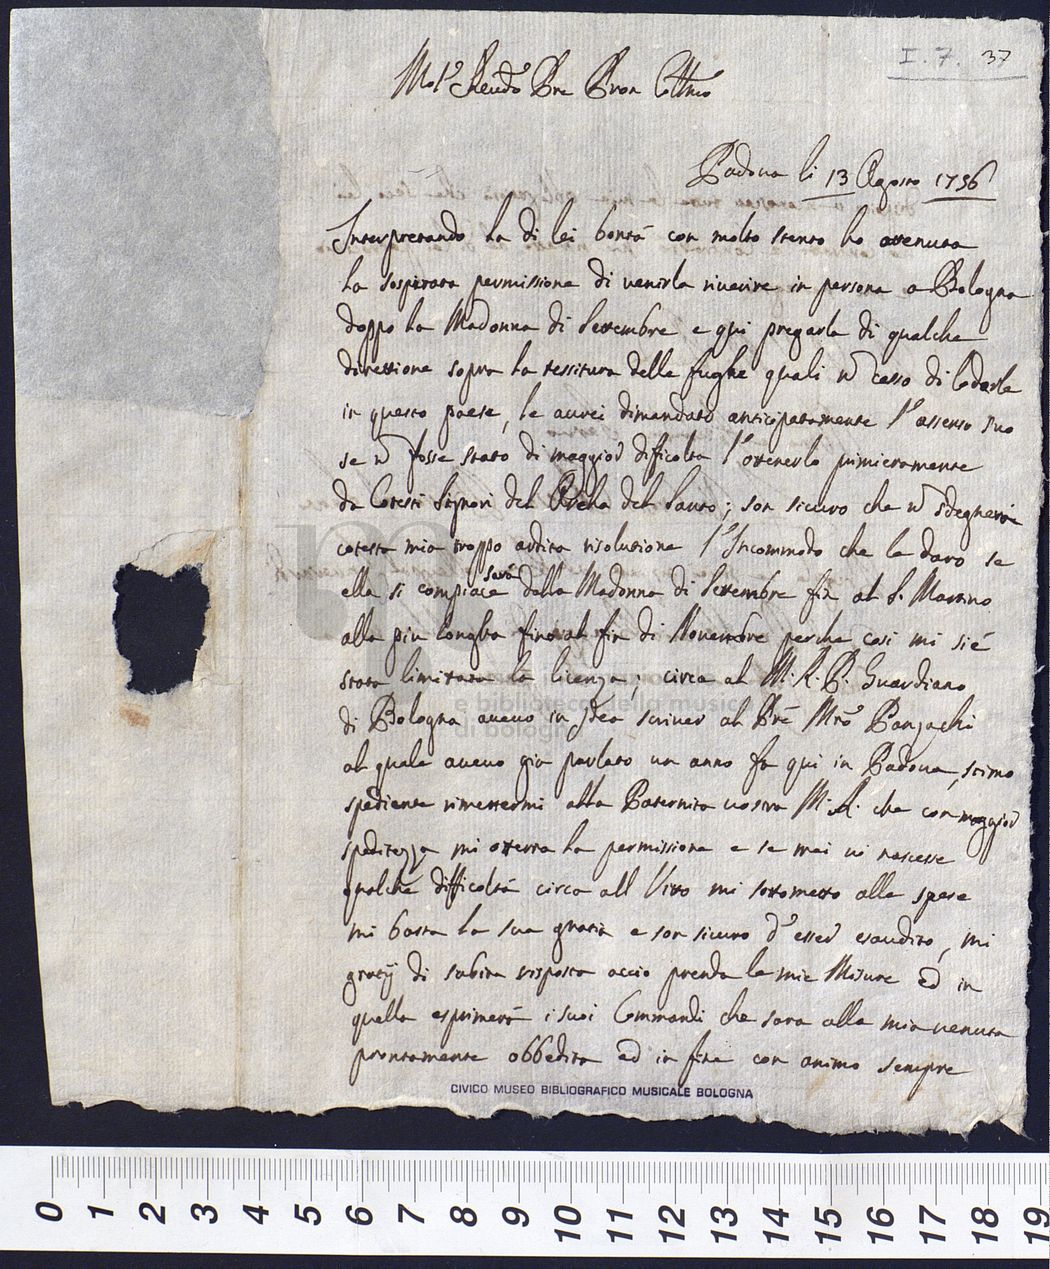 I. 7. 37
Molto Reudo Pre Pron Colmo
Padova li 13 Agosto 1756
Interpretando la di lei bontà con molto stento ho ottenuta
la sospirata permissione di venirla riverire in persona a Bologna
doppo la Madonna di Settembre e qui pregarla di qualche
direttione sopra la tessitura delle fughe quali
in questo paese, le avrei dimandato anticipatamente l'assenso suo
se ñ fosse stato di maggior dificolta l'ottenerlo primieramente
da Cotesti Signori del Archa del Santo; son sicuro che ñ sdegnerà
cotesta mia troppo ardita risolutione l'Incommodo che le daro se
ella si compiace sarà dalla Madonna di Settembre fin al S. Martino
alla piu longha fino al fin di Novembre perche cosi mi sié
stata limitata la licenza; circa al M. R. P. Guardiano
di Bologna avevo in Idea scriver al Prē Mrō Panzachi
al quale avevo gia parlato un anno fa qui in Padova, stimo
spediente rimettermi alla Paternita vostra M. R. che con maggior
speditezza mi otterra la permissione e se mai vi nascesse
qualche difficoltà circa all Vitto mi sottometto alle spese
mi basta la sua gratia e son sicuro d'esser esaudito, mi
gratij di subita risposta accio prenda le mie Misure ed in
quella esprimerà i suoi Commandi che sara alla mia venuta
prontamente obbedita ed in fine con animo sempre
CIVICO MUSEO BIBLIOGRAFICO MUSICALE BOLOGNA
e biblioteca della musica
di bologna
0 1 2 3 4 5 6 7 8 9 10 11 12 13 14 15 16 17 18 19